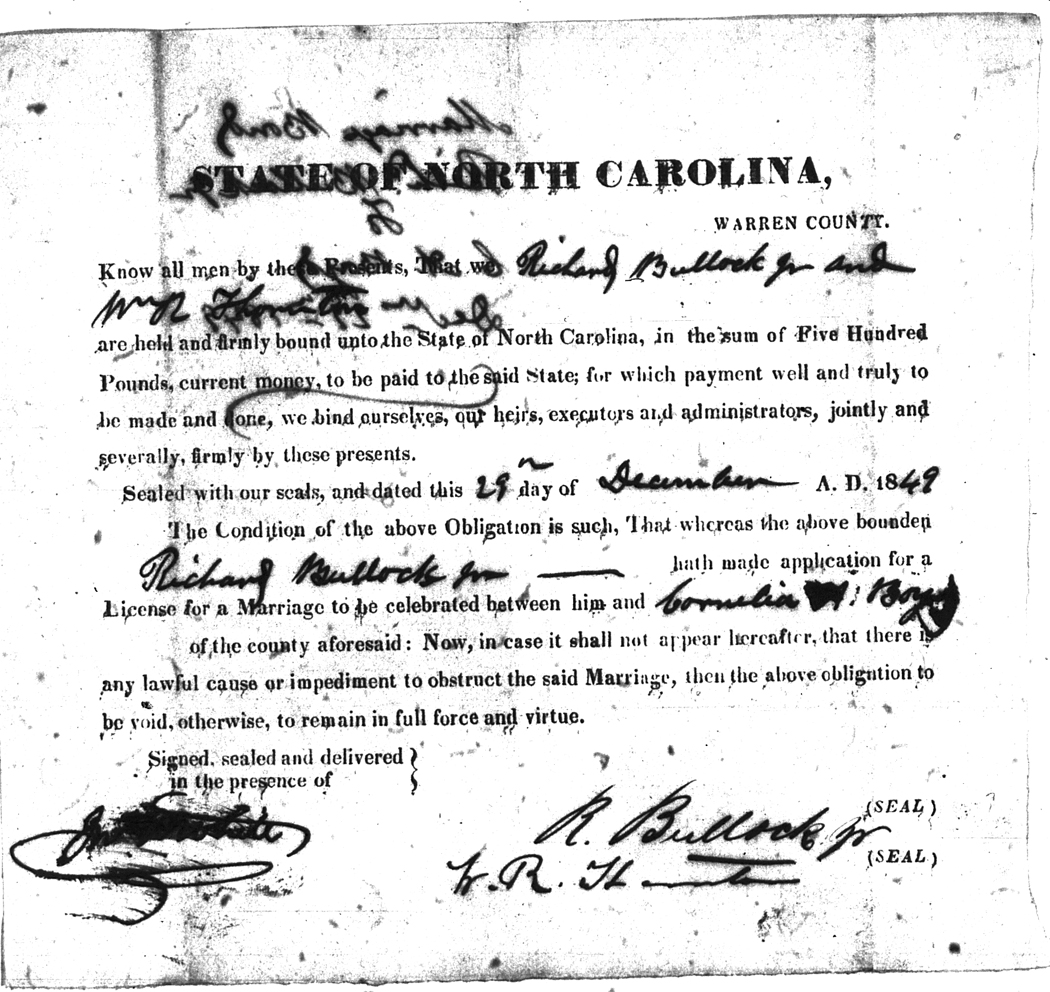 Marriage Bond
STATE OF NORTH CAROLINA,
To
WARREN COUNTY.
Know all men by these Presents, That we Richard Bullock Jr and
Wm R Thornton
are held and firmly bound unto the State of North Carolina, in the sum of Five Hundred
Pounds, current money, to be paid to the said State; for which payment well and truly to
be made and done, we bind ourselves, our heirs, executors and administrators, jointly and
severally, firmly by these presents.
Sealed with our seals, and dated this 29 day of December A. D. 1849
The Condition of the above Obligation is such, That whereas the above bounden
Richard Bullock Jr hath made application for a
License for a Marriage to be celebrated between him and Cornelia
of the county aforesaid: Now, in case it shall not appear hereafter, that there is
any lawful cause or impediment to obstruct the said Marriage, then the above obligation to
be void, otherwise, to remain in full force and virtue.
Signed, sealed and delivered
in the presence of
(SEAL)
R. Bullock Jr
(SEAL)
W. R. Thornton